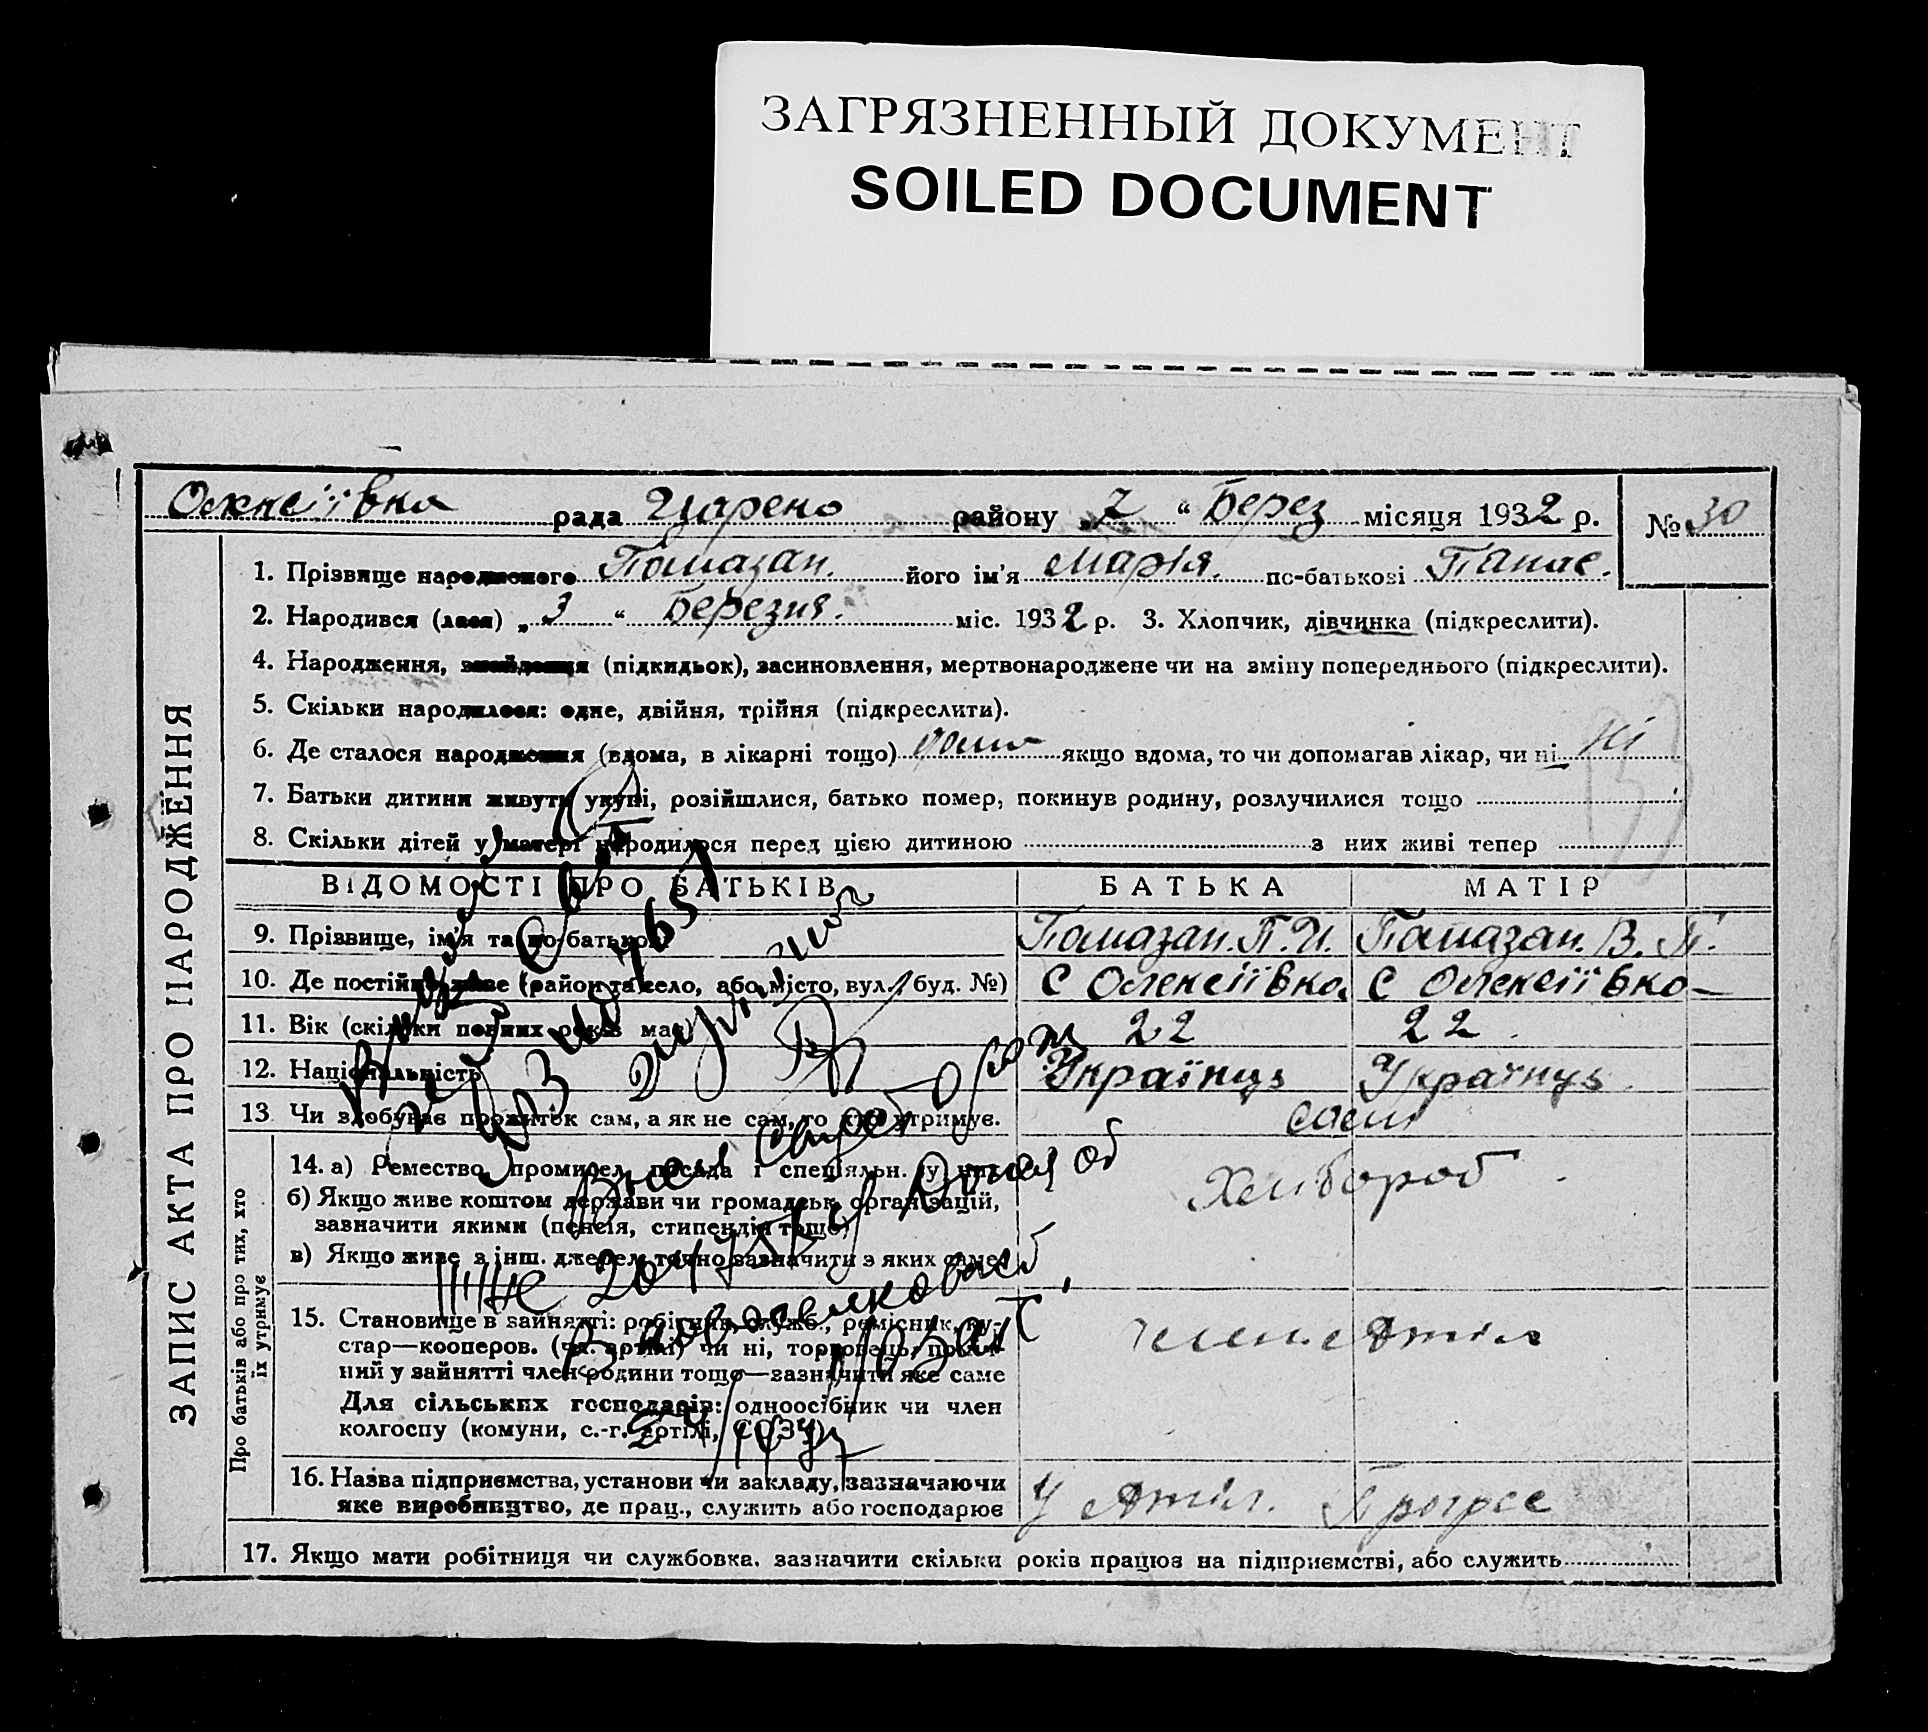 ЗАГРЯЗНЕННЫЙ ДОКУМЕНТ
SOILED DOCUMENT
Олексіївка рада Царено району „7“ Берез місяця 1932 р. № 30
ЗАПИС АКТА ПРО НАРОДЖЕННЯ
1. Прізвище народженого Помазан. його ім'я Марія. по-батькові Панас.
2. Народився (лася) „3“ Березня. міс. 1932 р. 3. Хлопчик, дівчинка (підкреслити).
4. Народження, знайдення (підкидьок), засиновлення, мертвонароджене чи на зміну попереднього (підкреслити).
5. Скільки народилося: одне, двійня, трійня (підкреслити).
6. Де сталося народження (вдома, в лікарні тощо) дома якщо вдома, то чи допомагав лікар, чи ні ні
7. Батьки дитини живуть укупі, розійшлися, батько помер, покинув родину, розлучилися тощо
8. Скільки дітей у матері народилося перед цією дитиною з них живі тепер
ВІДОМОСТІ ПРО БАТЬКІВ БАТЬКА МАТІР
9. Прізвище, ім'я та по-батькові Помазан. П. И. Помазан. В. П.
10. Де постійно живе (район та село, або місто, вул. буд. №) с Олексіївка. с Олексіївко
11. Вік (скільки повних років має) 22 22
12. Національність Українць Українць
13. Чи здобуває прожиток сам, а як не сам, то хто утримує. сами
Про батьків або про тих, хто їх утримує
14. а) Ремество, промисел, посада і спеціяльн. у них Хлібороб
б) Якщо живе коштом держави чи громадськ. організацій,
зазначити якими (пенсія, стипендія тощо)
в) Якщо живе з інш. джерел точно зазначити з яких саме
15. Становище в занятті: робітник, служб., ремісник, ку-
стар—кооперов. (чл. артілі) чи ні, торговець,
ний у зайнятті член родини тощо—зазначити яке саме
Для сільських господарів: одноосібник чи член
колгоспу (комуни, с.-г. артілі, СОЗу)
16. Назва підприємства, установи чи закладу, зазначаючи
яке виробництво, де прац., служить або господарює У Артіл. Прогрес
17. Якщо мати робітниця чи службовка. зазначити скільки років працює на підприємстві, або служить